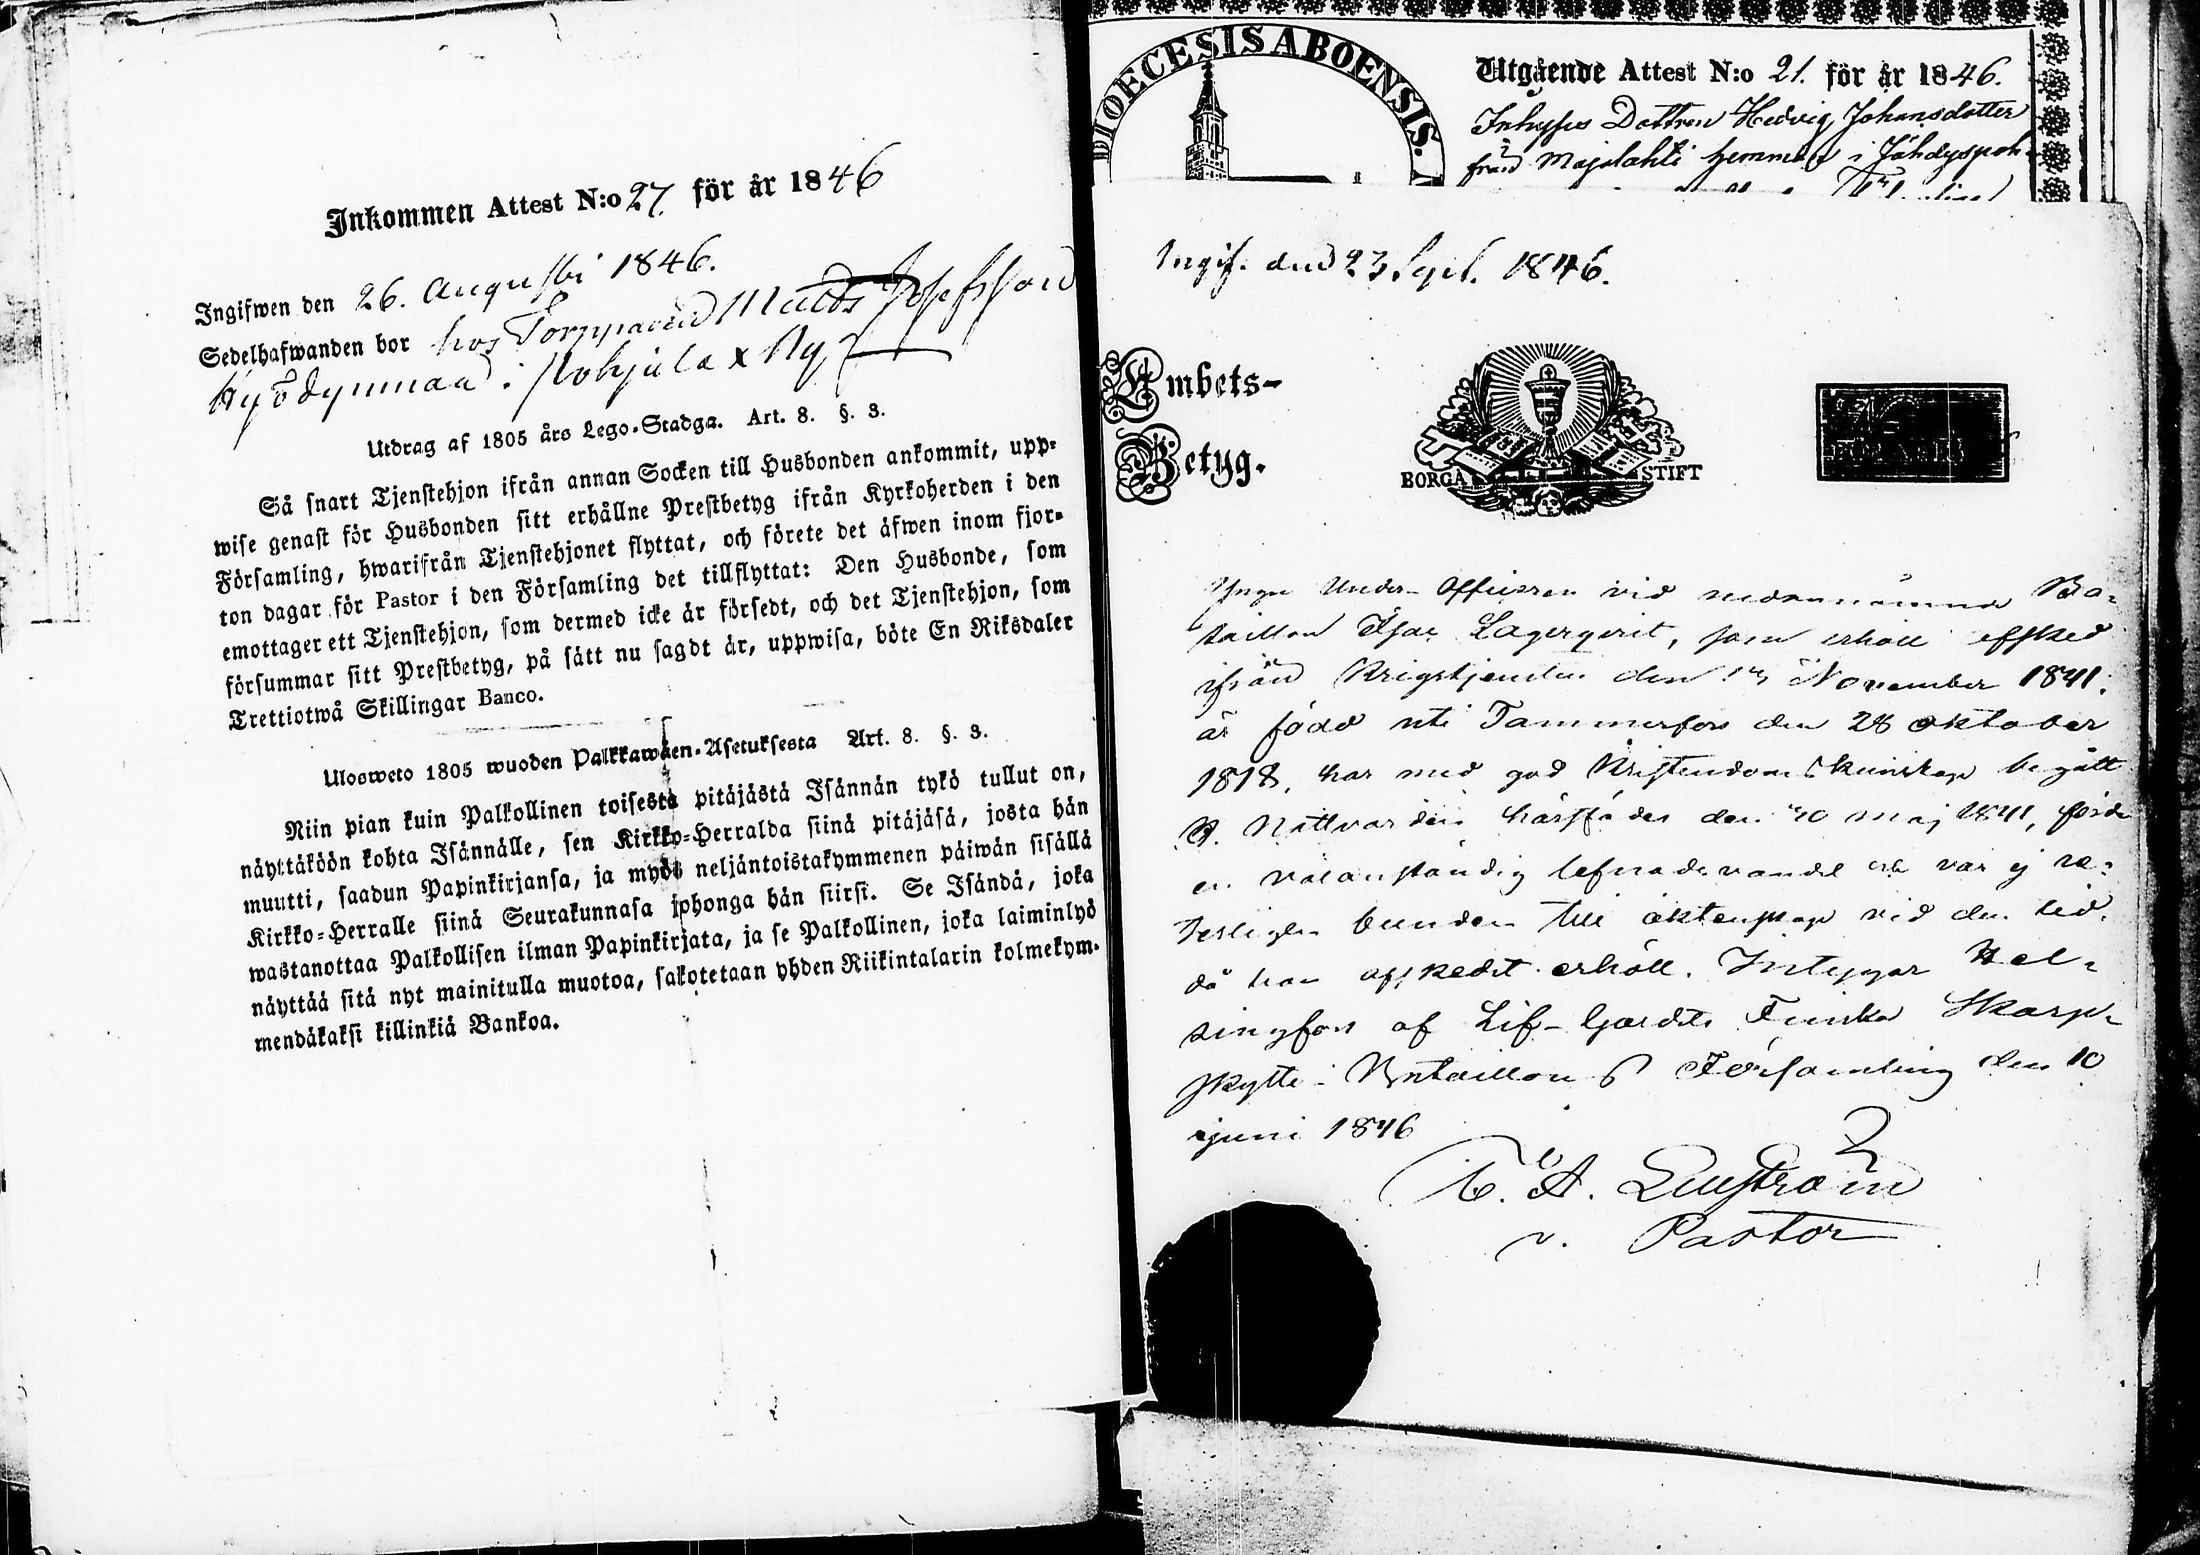 Inkommen Attest N:o 27. för år 1846
Ingifwen den 26. Augusti 1846.
Sedelhafwanden bor hos Torpparen Matts Josefsson
i Pohjula x By
Utdrag af 1805 års Lego-Stadga. Art. 8. §. 3.
Så snart Tjenstehjon ifrån annan Socken till Husbonden ankommit, upp-
wise genast för Husbonden sitt erhållne Prestbetyg ifrån Kyrkoherden i den
Församling, hwarifrån Tjenstehjonet flyttat, och förete det äfwen inom fjor-
ton dagar för Pastor i den Församling det tillflyttat: Den Husbonde, som
emottager ett Tjenstehjon, som dermed icke är försedt, och det Tjenstehjon, som
försummar sitt Prestbetyg, på sätt nu sagdt är, uppwisa, böte En Riksdaler
Trettiotwå Skillingar Banco.
Ulosweto 1805 wuoden Palkkawäen-Asetuksesta Art. 8. §. 3.
Niin pian kuin Palkollinen toisesta pitäjästä Isännän tykö tullut on,
näyttäköön kohta Isännälle, sen Kirkko-Herralda siinä pitäjäsä, josta hän
muutti, saadun Papinkirjansa, ja myös neljäntoistakymmenen päiwän sisällä
Kirkko-Herralle siinä Seurakunnasa johonga hän siirsi. Se Isändä, joka
wastanottaa Palkollisen ilman Papinkirjata, ja se Palkollinen, joka laiminlyö
näyttää sitä nyt mainitulla muotoa, sakotetaan yhden Riikintalarin kolmekym-
mendäkaksi killinkiä Bankoa.
DIOECESIS ABOENSIS.
Utgående Attest N:o 21. för år 1846.
Inhyses Dottren Hedvig Johansdotter
från Majalahti hemman i
Ingif. den 23 Sept. 1846.
Embets-
Betyg.
BORGÅ STIFT
Under-Officeren vid nedannämnde Ba-
taillon Isac Lagerqvist, som erhöll afsked
ifrån Krigstjensten den November 1841.
är född uti Tammerfors den 28 oktober
1818, har med god Kristendoms kunskap begått
H. Nattvarden härstädes den 30 maj 1841, förde
en välanständig lefnadsvandel och var ej va-
terligen bunden till äktenskap vid den tid,
då han afskedet erhöll. Intygar Hel-
singfors af Lif-Gardets Finska Skarp-
skytte-Bataillons Församling den 10
juni 1846
v. Pastor